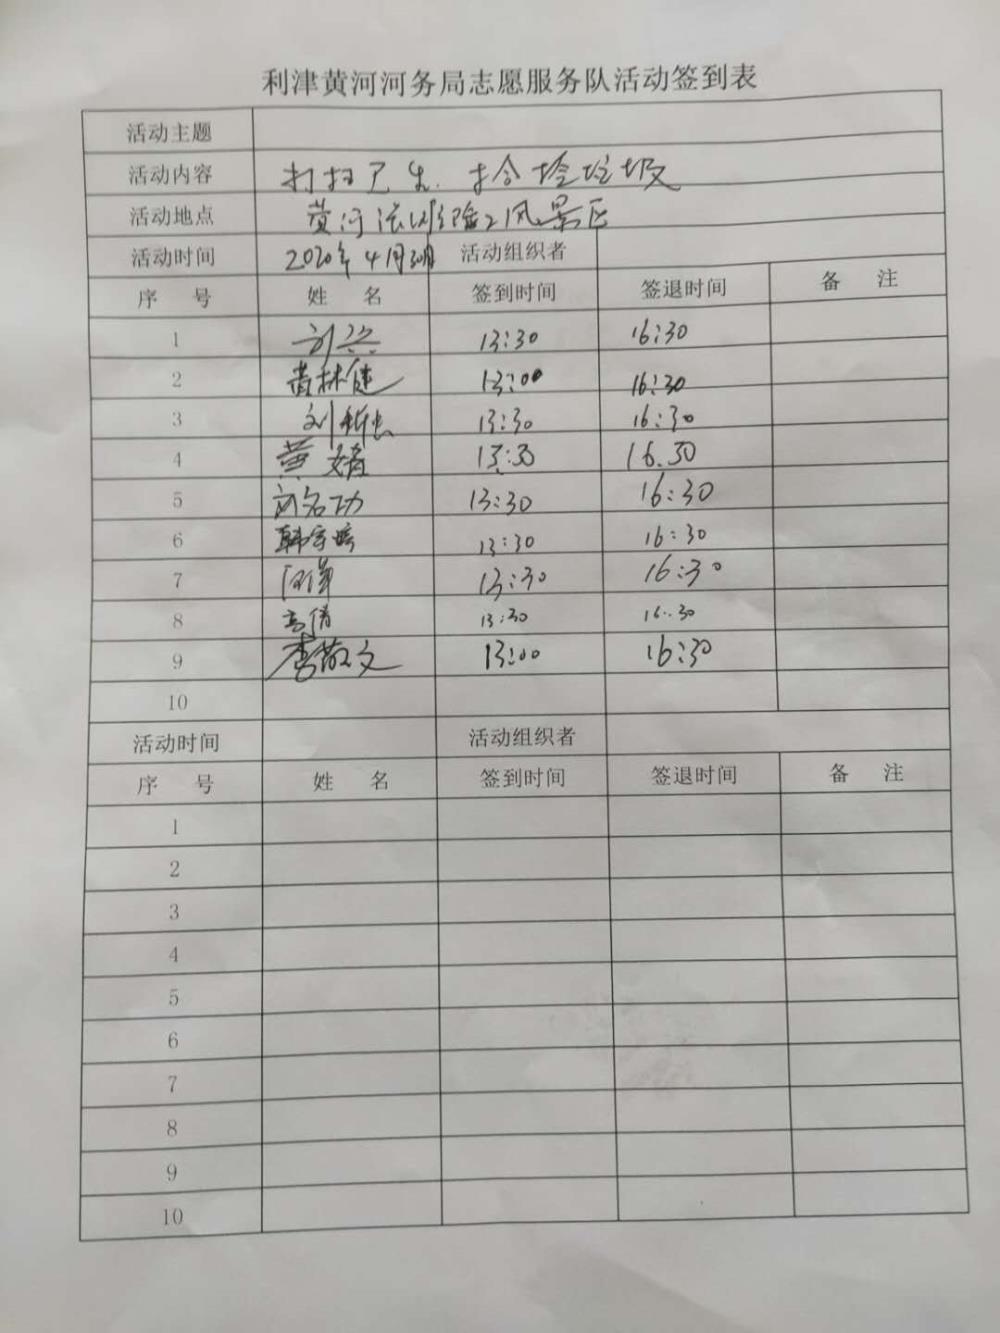 利津黄河河务局志愿服务队活动签到表
活动主题
活动内容 打扫卫生. 捡垃圾
活动地点 黄河 险工风景区
活动时间 2020年4月30日 活动组织者
序 号 姓 名 签到时间 签退时间 备 注
1 13:30 16:30
2 黄林健 13:00 16:30
3 刘新忠 13:30 16:30
4 黄婧 13:30 16.30
5 刘名功 13:30 16:30
6 13:30 16:30
7 13:30 16:30
8 高倩 13:30 16:30
9 李敬文 13:00 16:30
10
活动时间 活动组织者
序 号 姓 名 签到时间 签退时间 备 注
1
2
3
4
5
6
7
8
9
10